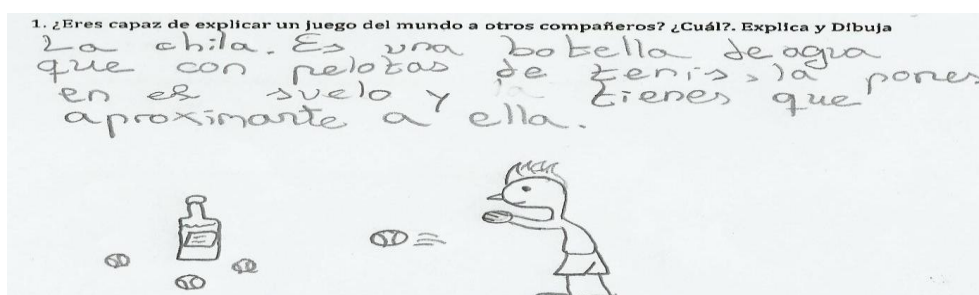 1. ¿Eres capaz de explicar un juego del mundo a otros compañeros? ¿Cuál?. Explica y Dibuja
La chila. Es una botella de agua
que con pelotas de tenis, la pones
en el suelo y tienes que
aproximarte a ella.